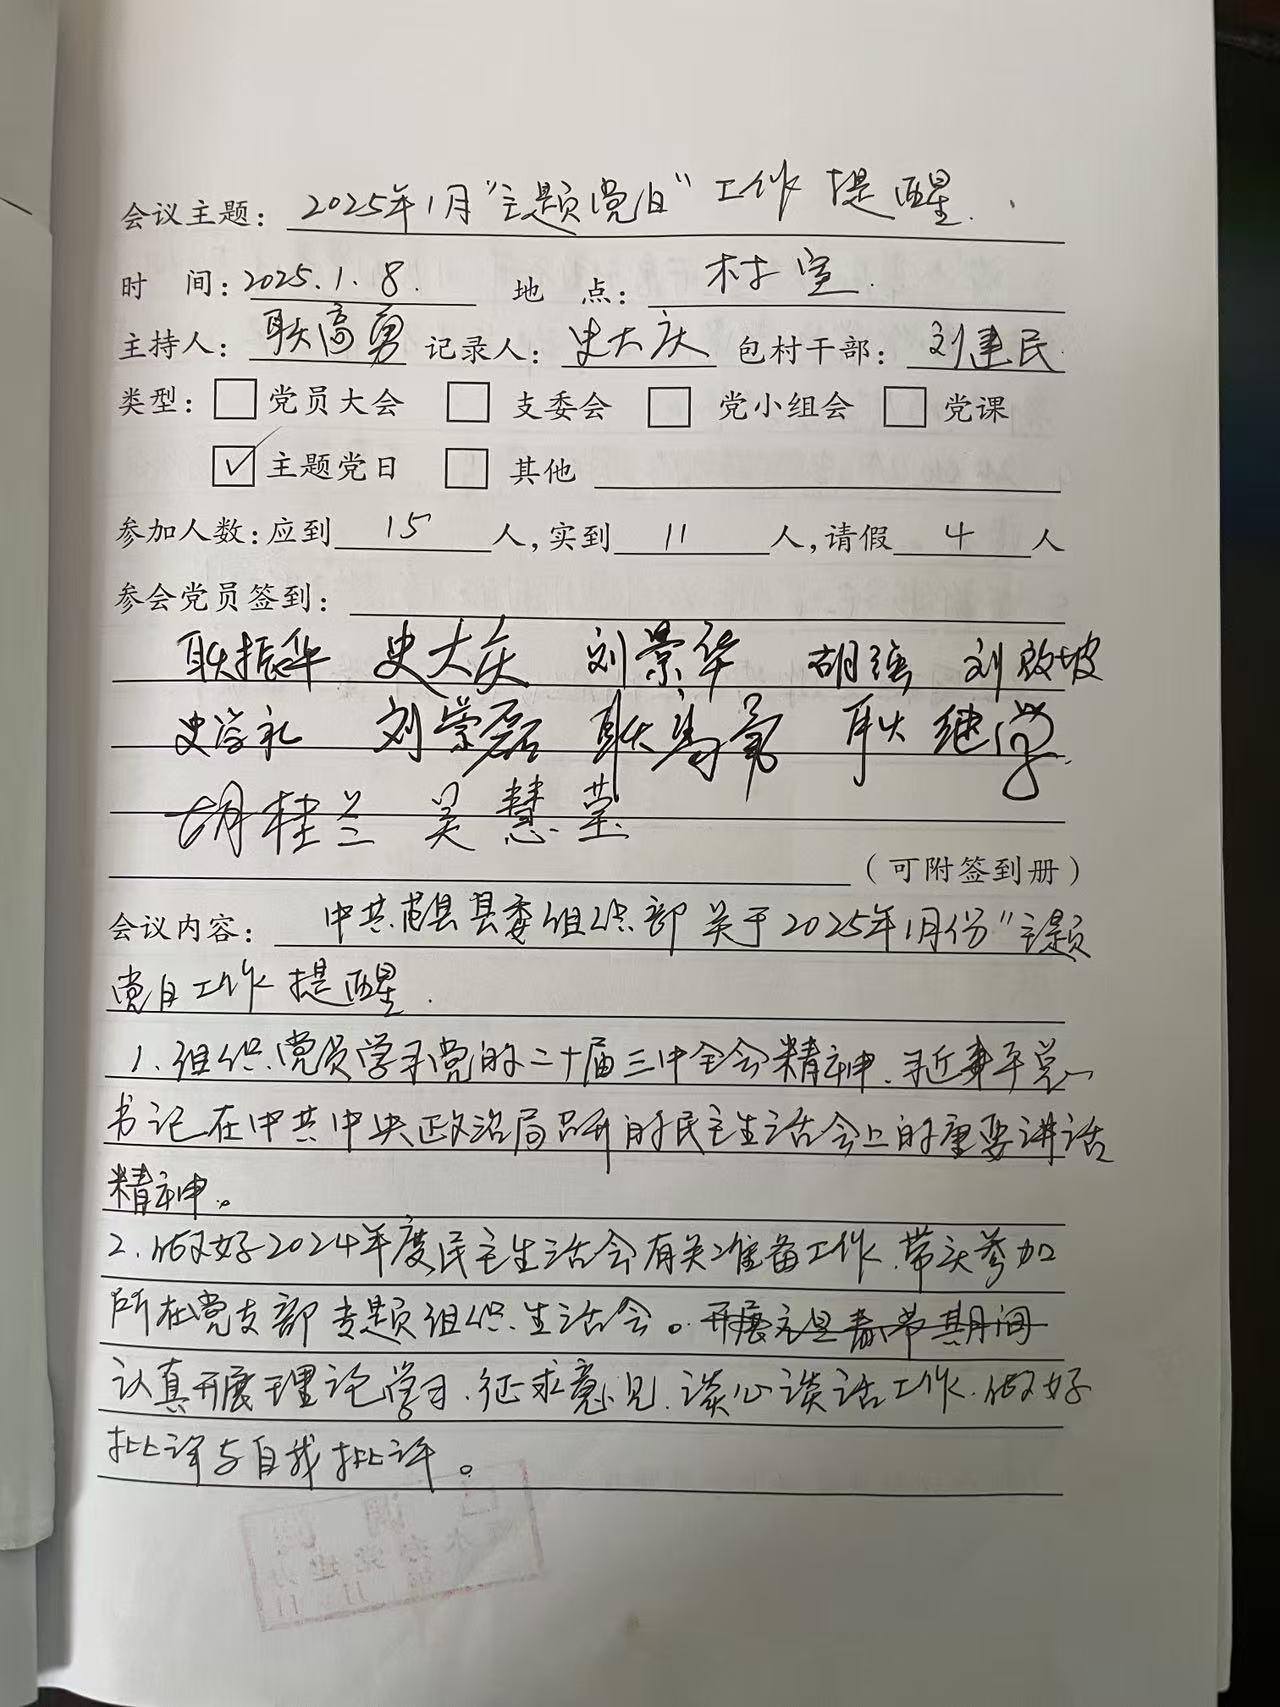 会议主题：2025年1月“主题党日”工作提醒.
时 间：2025.1.8. 地 点：村室.
主持人：耿高勇 记录人：史大庆 包村干部：刘建民
类型：□党员大会 □支委会 □党小组会 □党课
☑主题党日 □其他
参加人数：应到15人，实到11人，请假4人
参会党员签到：
耿振华 史大庆 刘景华 胡强 刘啟坡
史学礼 刘崇磊 耿高勇 耿继学
胡桂兰 吴慧莹
（可附签到册）
会议内容：中共范县县委组织部关于2025年1月份“主题
党日工作提醒.
1.组织党员学习党的二十届三中全会精神、习近平总
书记在中共中央政治局召开的民主生活会上的重要讲话
精神。
2.做好2024年度民主生活会有关准备工作、带头参加
所在党支部专题组织生活会。开展元旦春节期间
认真开展理论学习、征求意见、谈心谈话工作、做好
批评与自我批评。